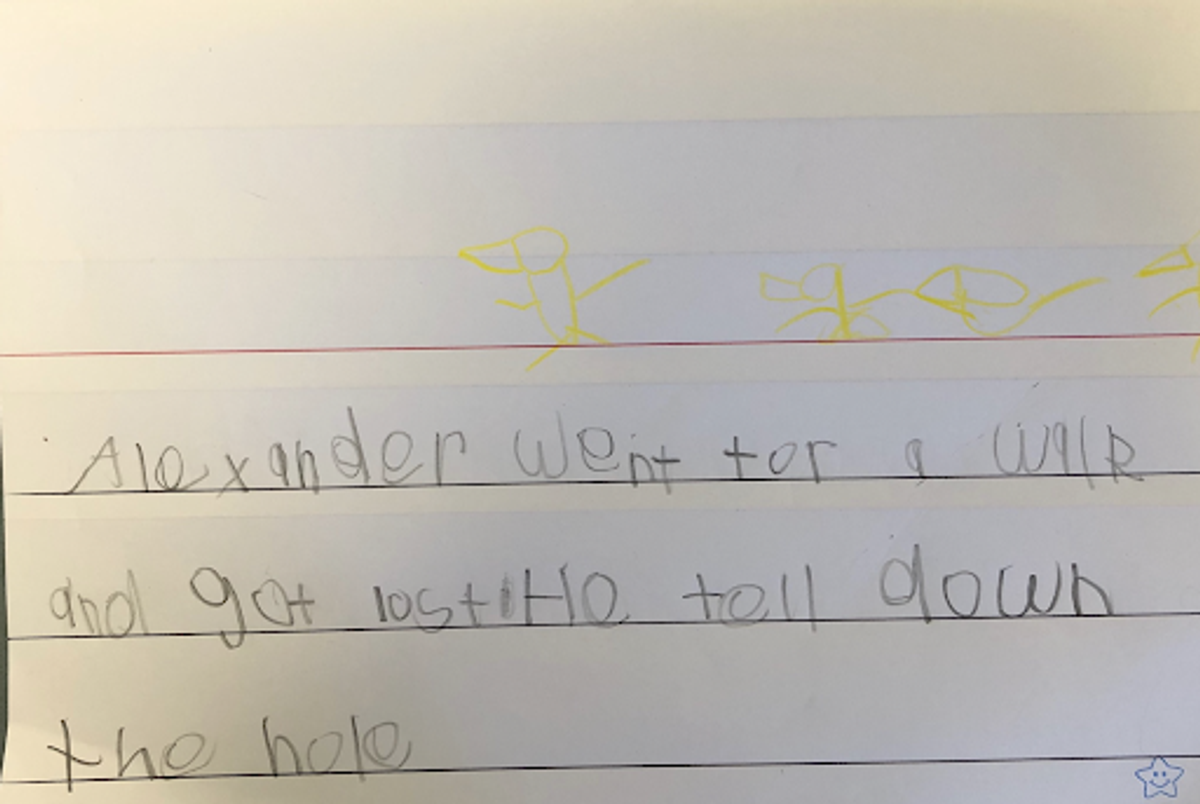 Alexander went for a walk
and got lost. He fell down
the hole